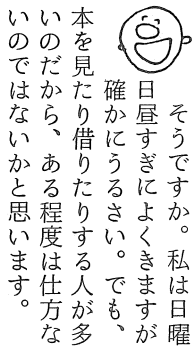 そうですか。私は日曜
日昼すぎによくきますが
確かにうるさい。でも、
本を見たり借りたりする人が多
いのだから、ある程度は仕方な
いのではないかと思います。